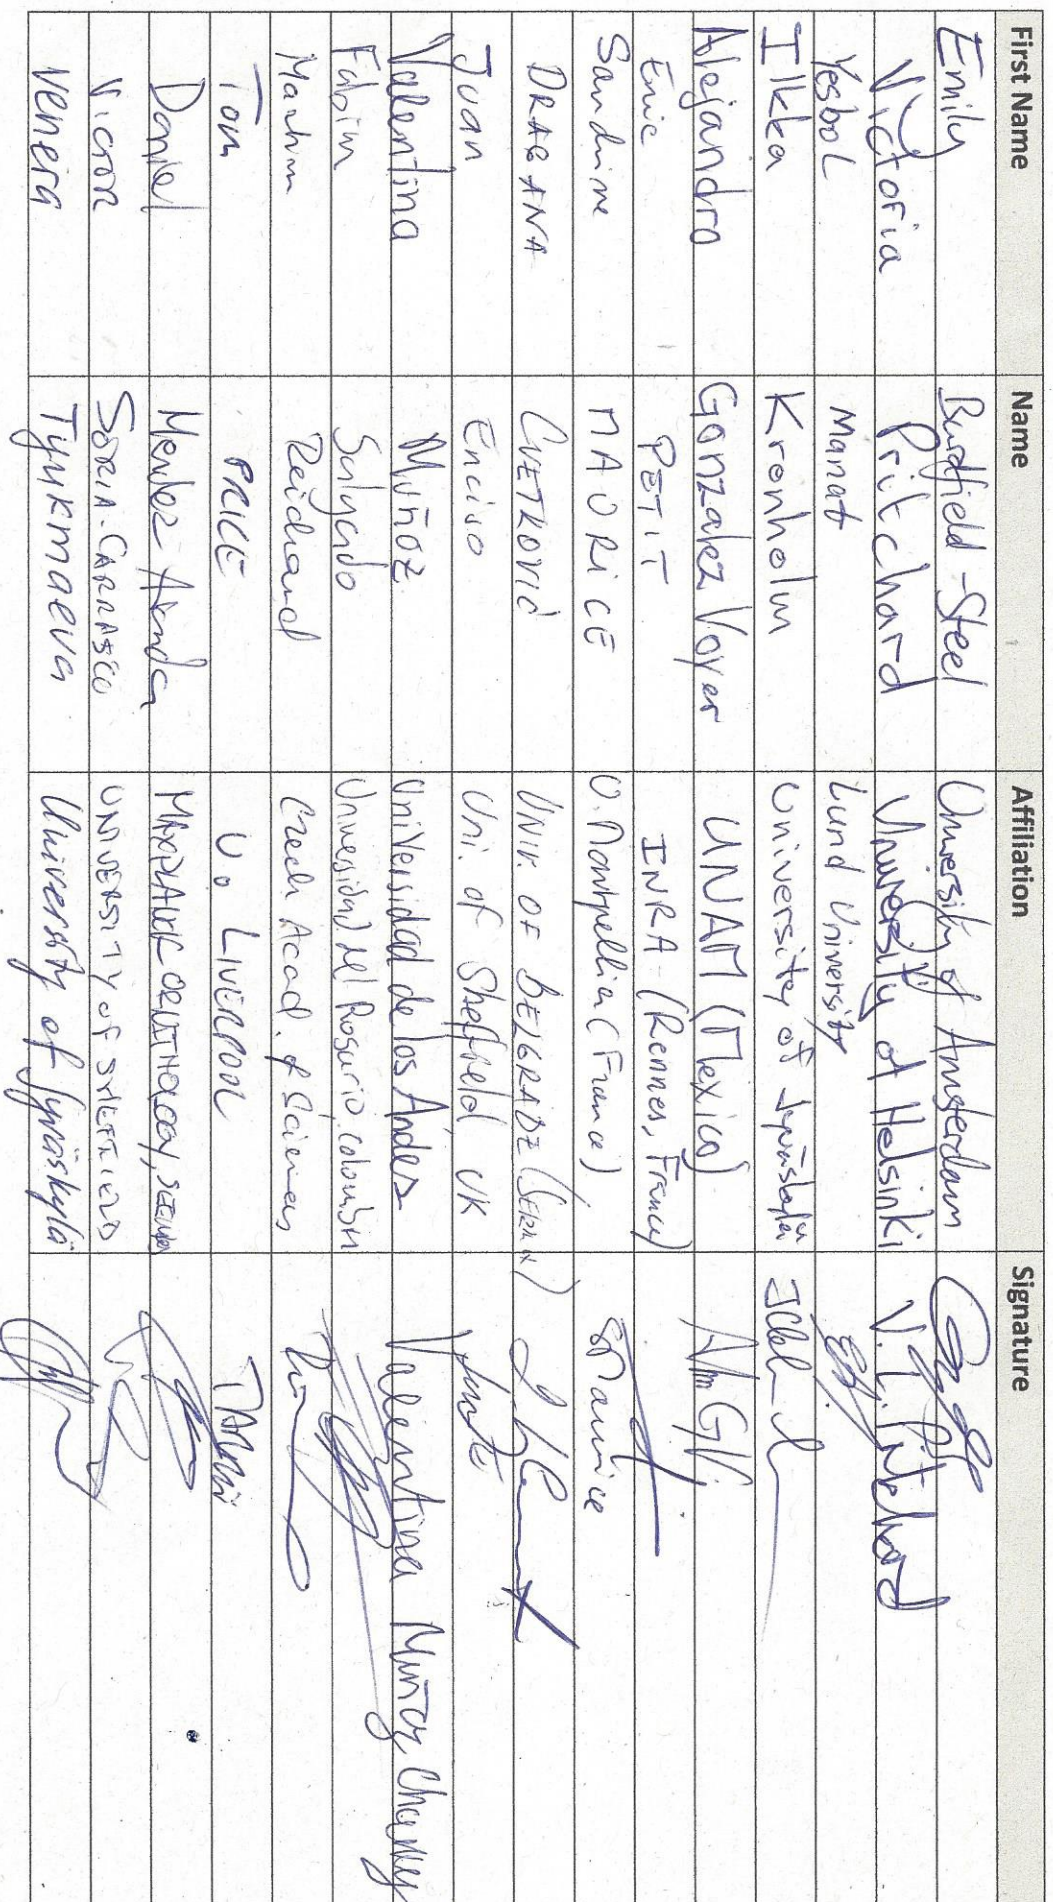 First Name Name Affiliation Signature
Emily Burdfield-Steel University of Amsterdam
Victoria Pritchard University of Helsinki V. L. Pritchard
Yesbol Manat Lund University
Ilkka Kronholm University of Jyväskylä
Alejandro Gonzalez Voyer UNAM (Mexico)
Eric PETIT INRA - (Rennes, France)
Sandrine MAURICE U. Montpellier (France) Maurice
DRAGANA CVETKOVIĆ UNIV. OF BELGRADE (SERBIA)
Juan Enciso Uni. of Sheffield, UK
Valentina Muñoz Universidad de los Andes Valentina Muñoz
Fabian Salgado Universidad del Rosario, Colombia
Reichard Czech Acad. of Sciences
Tom PRICE U. LIVERPOOL
Daniel Mendez Aranda MAXPLANCK ORNITHOLOGY,
Victor SORIA-CARRASCO UNIVERSITY OF SHEFFIELD
Venera Tyukmaeva University of Jyväskylä